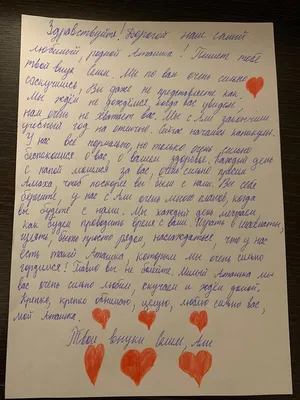 Здравствуйте! Дорогой наш самый
любимый, родной Аташка! Пишет тебе
твой внук . Мы по вам очень сильно
соскучились. Вы даже не представляете как
Мы ждём не дождёмся, когда вас увидим.
Нам очень не хватает вас. Мы с Али закончили
учебный год на отлично. Сейчас начались каникулы.
У нас всё нормально, но только очень сильно
беспокоимся о вас, о вашем здоровье. Каждый день
с папой молимся за вас, очень сильно просим
Аллаха, чтоб поскорее вы были с нами. Вы себя
берегите, у нас с Али очень много планов, когда
вы будете с нами. Мы каждый день мечтаем,
как будем проводить время с вами. Играть в шахматы,
гулять, быть просто рядом, наслаждаться, что у нас
есть такой Аташка, которым мы очень сильно
гордимся! Главное вы не болейте. Милый Аташка мы
вас очень сильно любим, скучаем и ждём домой.
Крепко, крепко обнимаю, целую, люблю сильно вас,
мой Аташка.
Твои внуки , Али